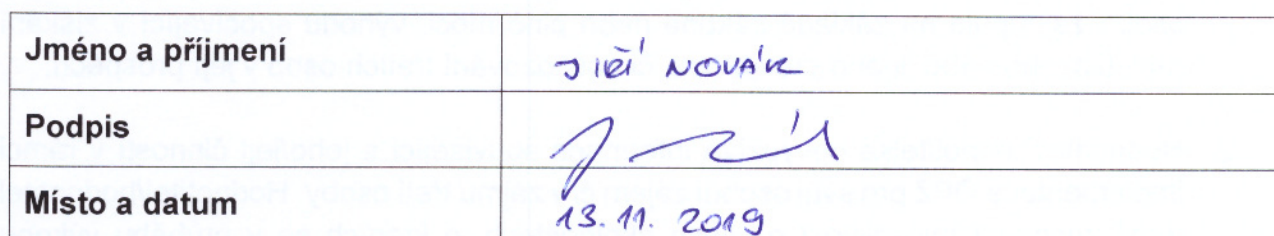 Jméno a příjmení JIŘÍ NOVÁK
Podpis
Místo a datum 13. 11. 2019